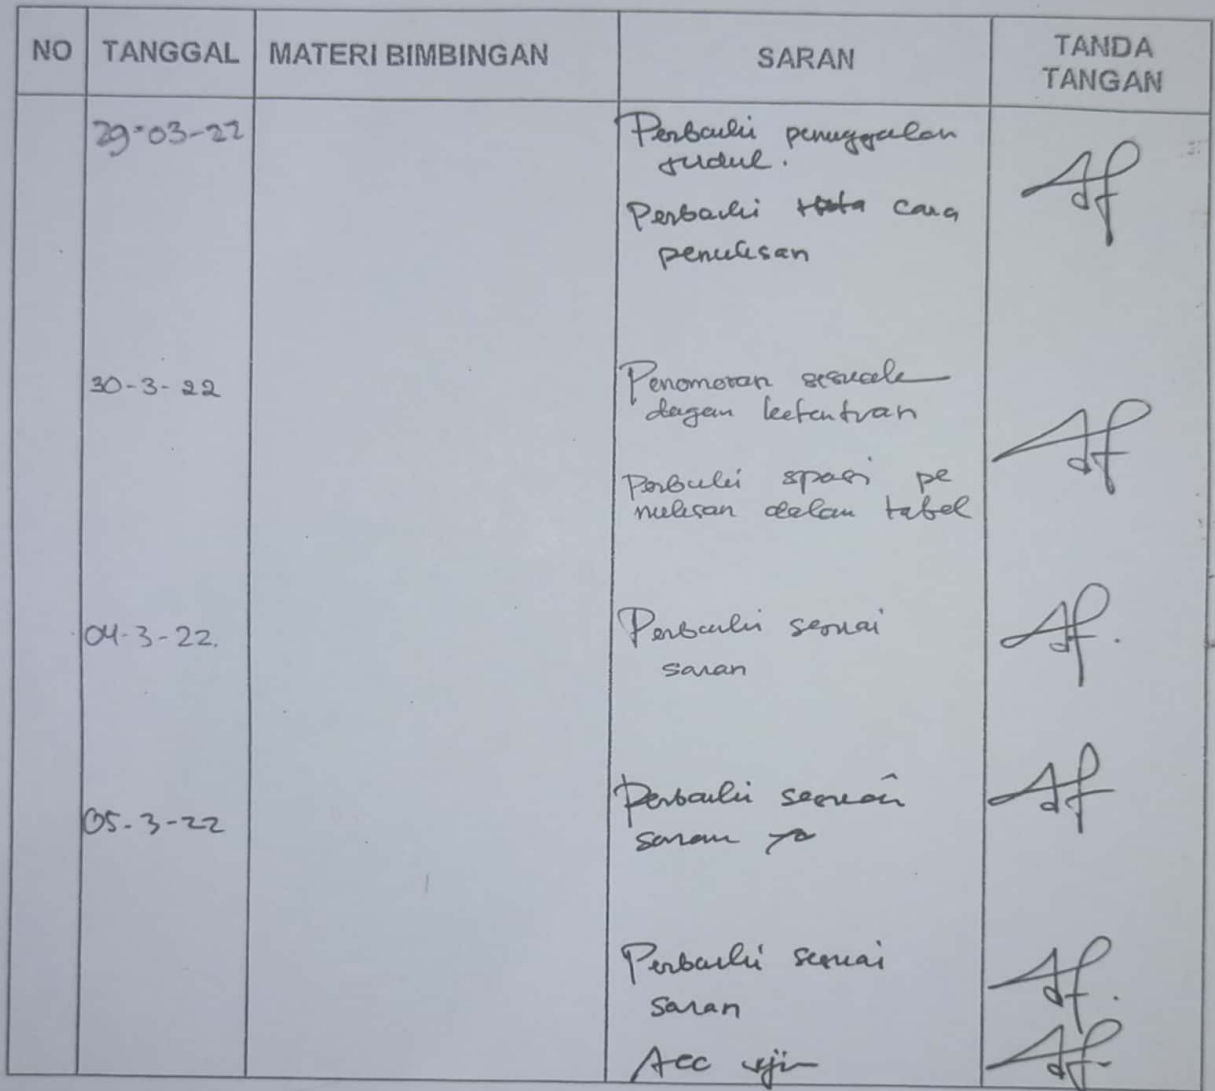 NO TANGGAL MATERI BIMBINGAN SARAN TANDA
TANGAN
29-03-22 Perbaiki penuggalan
judul.
Perbaiki cara
penulisan
30-3-22 Penomoran sesuai
degan ketentuan
Perbaiki spasi pe
nulisan dalam tabel
04-3-22. Perbaiki sesuai
saran
05-3-22 Perbaiki sesuai
saran
Perbaiki sesuai
saran
Acc ujin